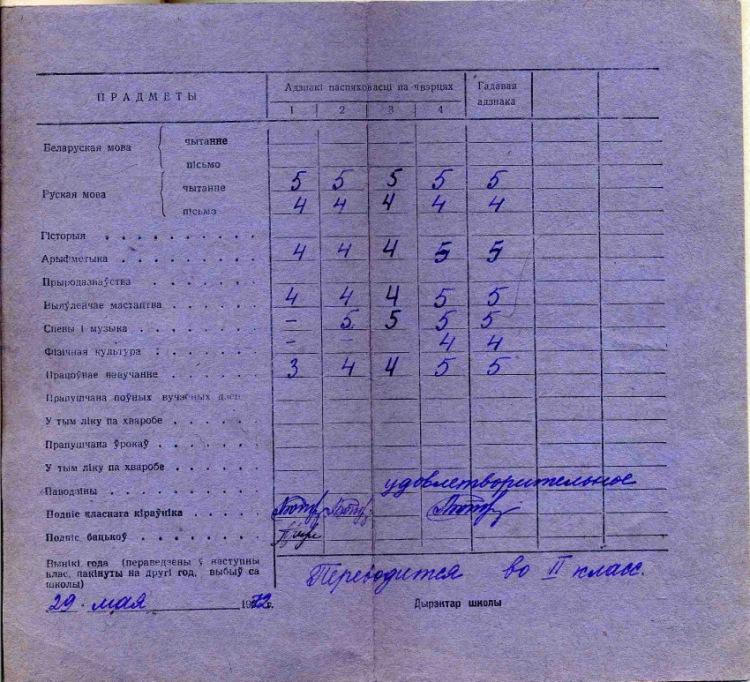 ПРАДМЕТЫ Адзнакі паспяховасці па чвэрцях Гадавая адзнака
1 2 3 4
Беларуская мова чытанне
пісьмо
Руская мова чытанне 5 5 5 5 5
пісьмо 4 4 4 4 4
Гісторыя
Арыфметыка 4 4 4 5 5
Прыродазнаўства
Выяўленчае мастацтва 4 4 4 5 5
Спевы і музыка – 5 5 5 5
Фізічная культура – – 4 4
Працоўнае навучанне 3 4 4 5 5
Прапушчана поўных вучэбных дзён
У тым ліку па хваробе
Прапушчана ўрокаў
У тым ліку па хваробе
Паводзіны удовлетворительное
Подпіс класнага кіраўніка
Подпіс бацькоў
Вынікі года (пераведзены ў наступны
клас, пакінуты на другі год, выбыў са
школы) Переводится во II класс.
29. мая 1972г. Дырэктар школы